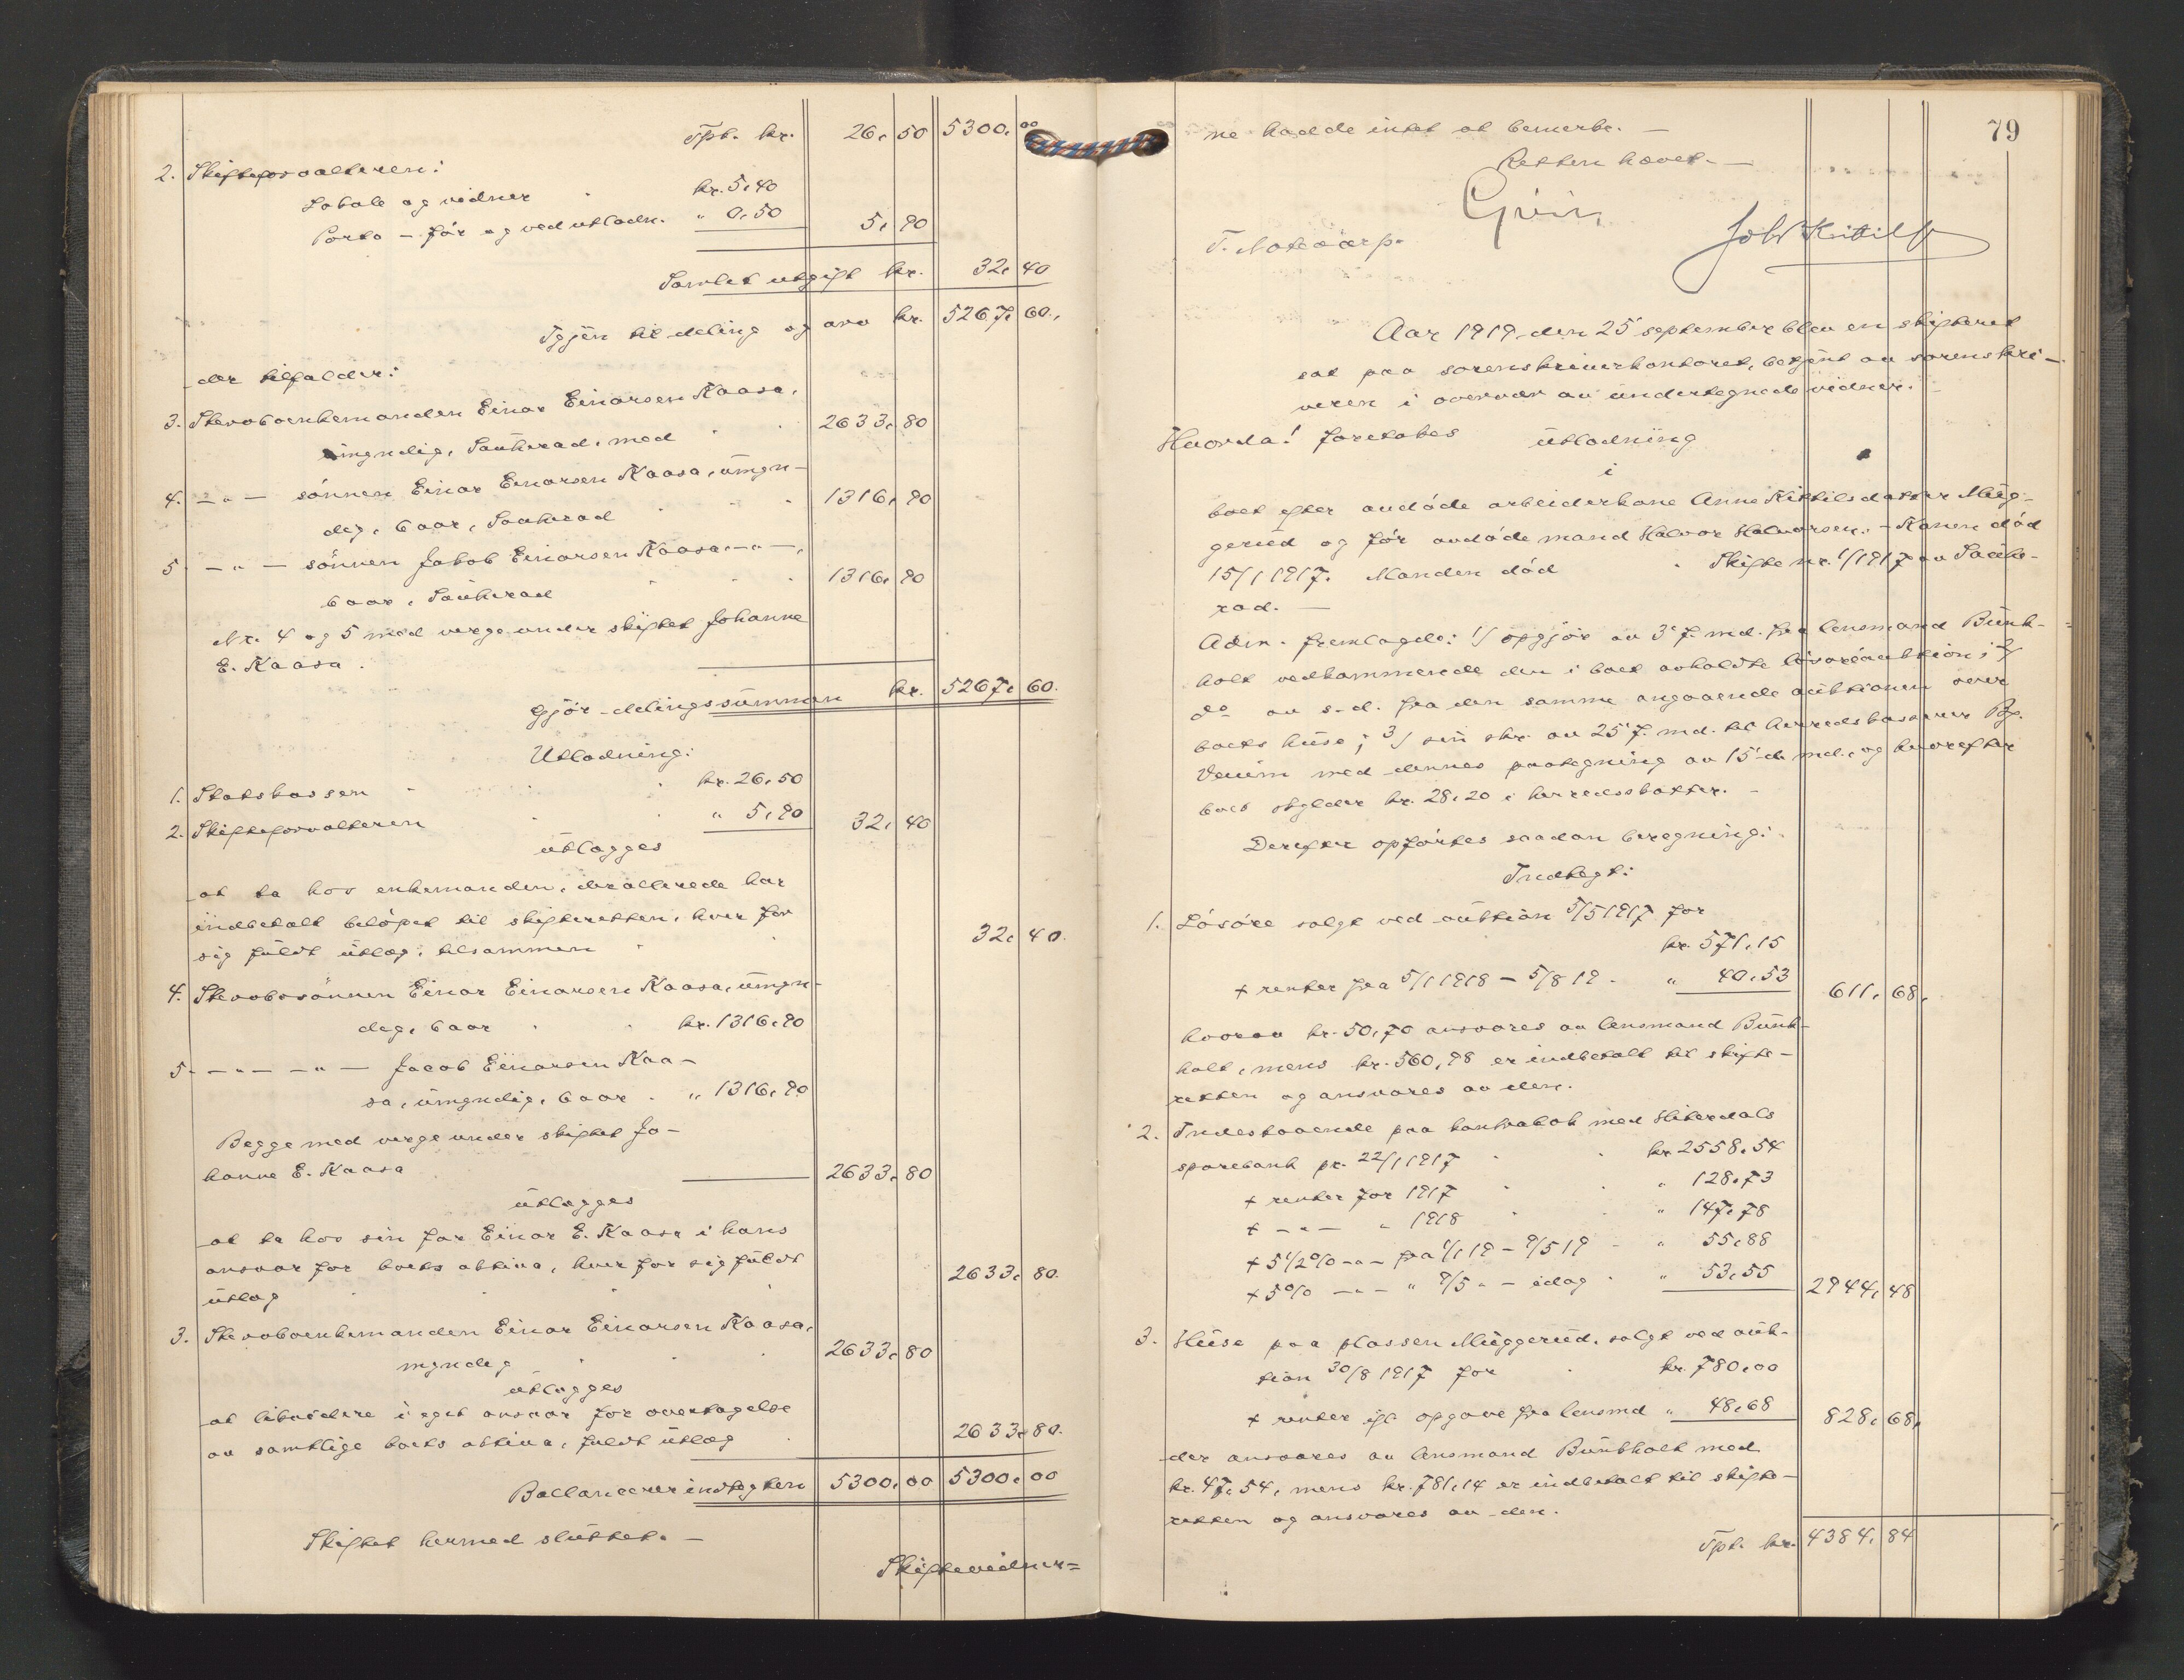 Tpt. kr. 26,50 5300,00
2. Skifteforvalteren:
Lokale og vidner kr. 5,40
Porto – før og ved utlodn. " 0,50 5,90
Samlet utgift kr. 32,40
Igjen til deling og arv kr. 5267,60.
der tilfalder:
3. Stervboenkemanden Einar Einarsen Kaasa,
myndig, Sauherad, med 2633,80
4. – " – sønnen Einar Einarsen Kaasa, umyn-
dig, 6 aar, Sauherad 1316,90
5. – " – sønnen Jakob Einarsen Kaasa – " –,
6 aar, Sauherad 1316,90
Nr. 4 og 5 med verge under skiftet Johanne
E. Kaasa.
Gjør delingssummen kr. 5267,60.
Utlodning:
1. Statskassen kr. 26,50
2. Skifteforvalteren " 5,90 32,40
utlægges
at ta hos enkemanden, der allerede har
indbetalt beløpet til skifteretten, hver for
sig fuldt utlæg, tilsammen 32,40.
4. Stervbosønnen Einar Einarsen Kaasa, umyn-
dig, 6 aar kr. 1316,90
5. – " – – " – Jacob Einarsen Kaa-
sa, umyndig, 6 aar " 1316,90
Begge med verge under skiftet Jo-
hanne E. Kaasa 2633,80
utlægges
at ta hos sin far Einar E. Kaasa i hans
ansvar for boets aktiva, hver for sig fuldt
utlæg 2633,80.
3. Stervboenkemanden Einar Einarsen Kaasa,
myndig 2633,80
utlægges
at likvidere i eget ansvar for overtagelse
av samtlige boets aktiva, fuldt utlæg 2633,80.
Ballancerer indtægten 5300,00 5300,00
Skiftet hermed sluttet. –
Skiftevidner=
79
ne hadde intet at bemerke. –
Retten hævet. –
T. Notoarp.
Aar 1919 den 25' september blev en skifteret
sat paa sorenskriverkontoret, betjent av sorenskri-
veren i overvær av undertegnede vidner.
Hvorda! foretokes utlodning
i
boet efter avdøde arbeiderkone Anne Kittilsdatter Mug-
gerud og før avdøde mand Halvor Halvorsen. – Konen død
15/1 1917. Manden død . Skifte nr. 1/1917 av Sauhe-
rad. –
Adm. fremlagde: 1) opgjør av 3' f. md. fra lensmand Bunk-
holt vedkommende den i boet avholdte løsøreauktion; 2)
do av s.d. fra den samme angaaende auktionen over
boets huse; 3) sin skr. av 25' f. md. til herredskasserer Bj.
Venum med dennes paategning av 15' d. md., og hvorefter
boet skylder kr. 28,20 i herredsskatter. –
Derefter opførtes saadan beregning:
Indtægt:
1. Løsøre solgt ved auktion 5/5 1917 for
kr. 571,15
+ renter fra 5/1 1918 – 5/8 19 . " 40,53 611,68,
hvorav kr. 50,70 ansvares av lensmand Bunk-
holt, mens kr. 560,98 er indbetalt til skifte-
retten og ansvares av den.
2. Indestaaende paa kontrabok med Hiterdals
sparebank pr. 22/1 1917 kr. 2558,54
+ renter for 1917 " 128,73
+ – " – " 1918 " 147,78
+ 5 1/2 % – " – fra 1/1 19 – 9/5 19 – " 55,88
+ 5 % – " – " 9/5 " – idag " 53,55 2944,48
3. Huse paa plassen Muggerud, solgt ved auk-
tion 30/8 1917 for kr. 780,00
+ renter ifl. opgave fra lensmd " 48,68 828,68,
der ansvares av lensmand Bunkholt med
kr. 47,54, mens kr. 781,14 er indbetalt til skifte-
retten og ansvares av den.
Tpt. kr. 4384,84